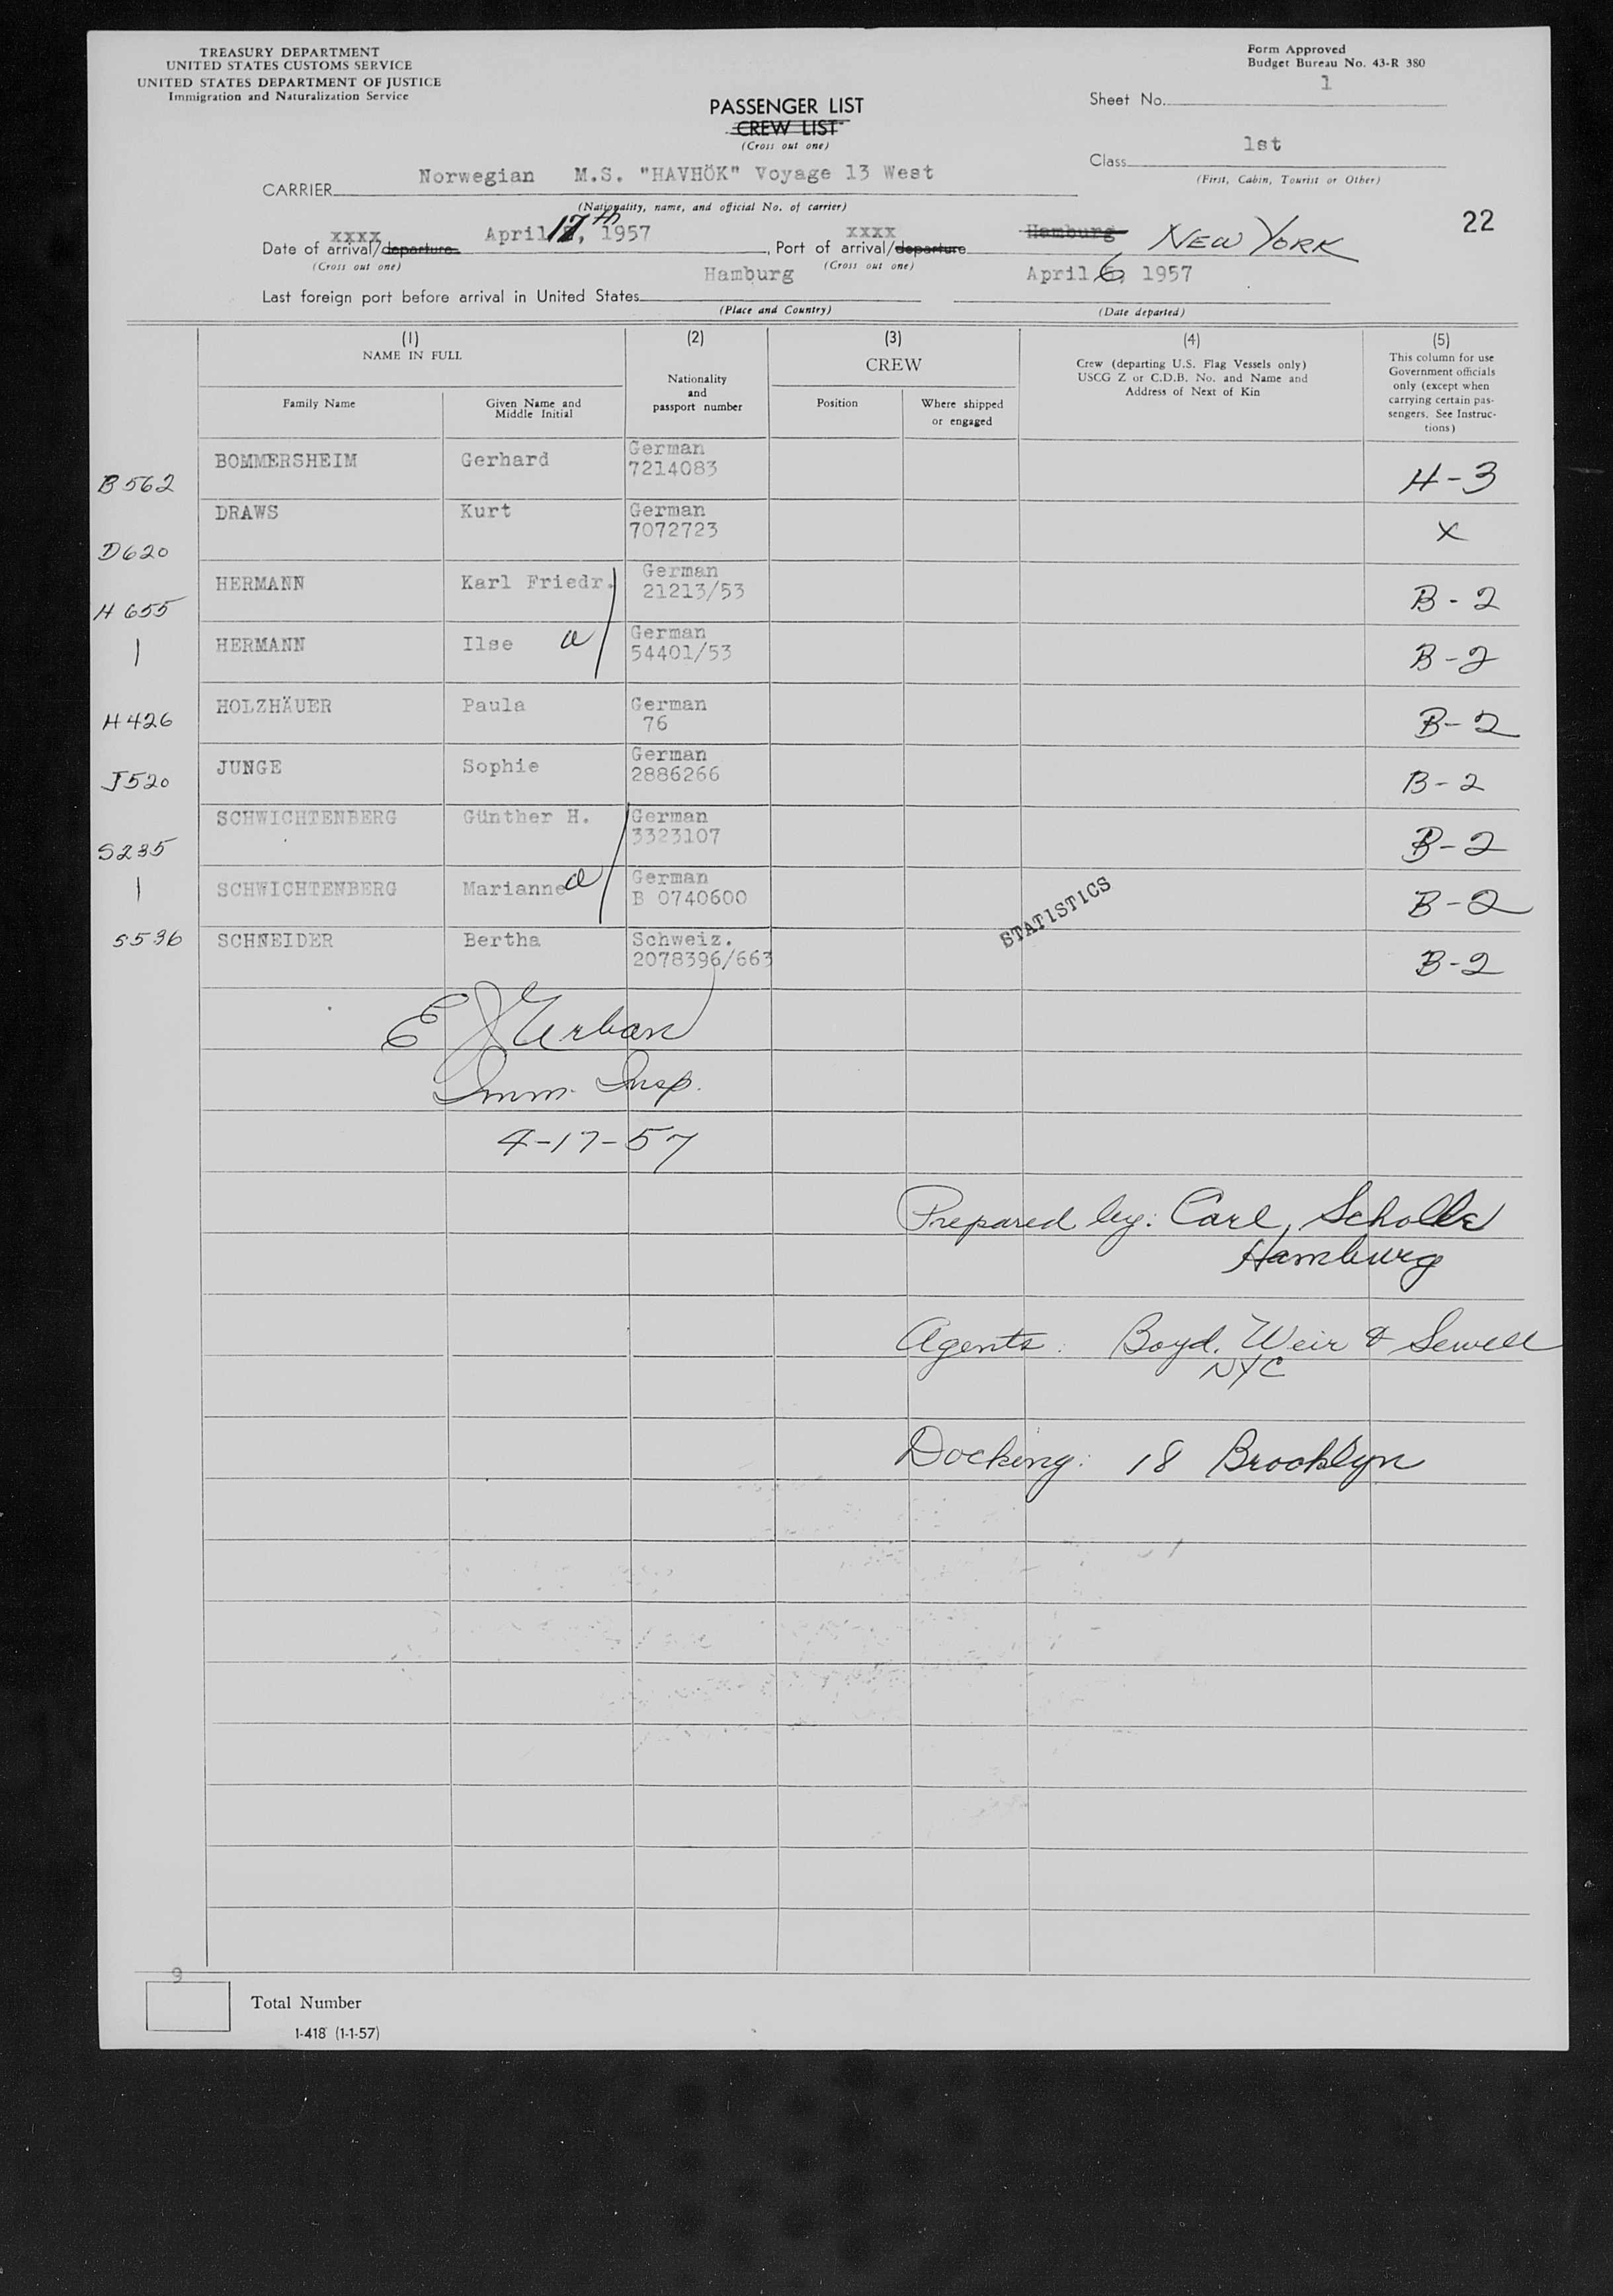 TREASURY DEPARTMENT
UNITED STATES CUSTOMS SERVICE
UNITED STATES DEPARTMENT OF JUSTICE
Immigration and Naturalization Service
Form Approved
Budget Bureau No. 43-R 380
PASSENGER LIST
CREW LIST
(Cross out one)
Sheet No. 1
Class 1st
(First, Cabin, Tourist or Other)
CARRIER Norwegian M.S. "HAVHÖK" Voyage 13 West
(Nationality, name, and official No. of carrier)
22
xxxx xxxx
Date of arrival/departure April 17th, 1957, Port of arrival/departure Hamburg NEW YORK
(Cross out one) (Cross out one)
Last foreign port before arrival in United States Hamburg April 6, 1957
(Place and Country) (Date departed)
(1) (2) (3) (4) (5)
NAME IN FULL
Family Name
Given Name and
Middle Initial
Nationality
and
passport number
CREW
Position
Where shipped
or engaged
Crew (departing U.S. Flag Vessels only)
USCG Z or C.D.B. No. and Name and
Address of Next of Kin
This column for use
Government officials
only (except when
carrying certain pas-
sengers. See Instruc-
tions)
B 562 BOMMERSHEIM Gerhard German 7214083 H-3
D620 DRAWS Kurt German 7072723 X
H 655 HERMANN Karl Friedr. German 21213/53 B-2
| HERMANN Ilse a German 54401/53 B-2
H426 HOLZHÄUER Paula German 76 B-2
J520 JUNGE Sophie German 2886266 B-2
S235 SCHWICHTENBERG Günther H. German 3323107 B-2
| SCHWICHTENBERG Marianne a German B 0740600 B-2
S536 SCHNEIDER Bertha Schweiz. 2078396/663 B-2
STATISTICS
E J Urban
Imm. Insp.
4-17-57
Prepared by: Carl, Scholle
Hamburg
Agents: Boyd, Weir & Sewell
NYC
Docking: 18 Brooklyn
9
Total Number
I-418 (1-1-57)